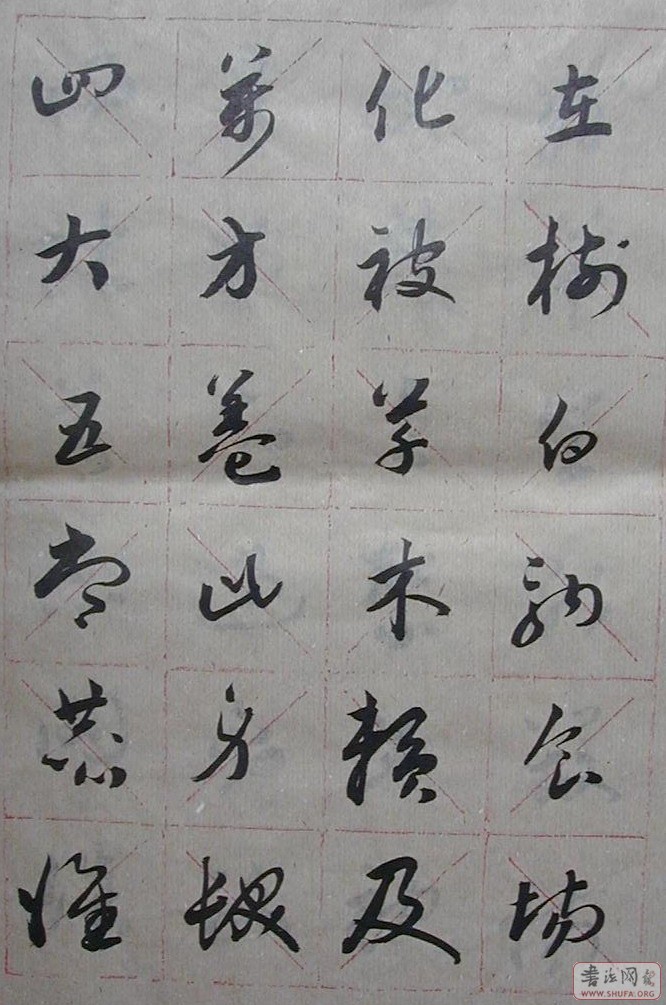 在樹白駒食場
化被草木賴及
萬方蓋此身髮
四大五常恭惟
書法网
WWW.SHUFA.ORG